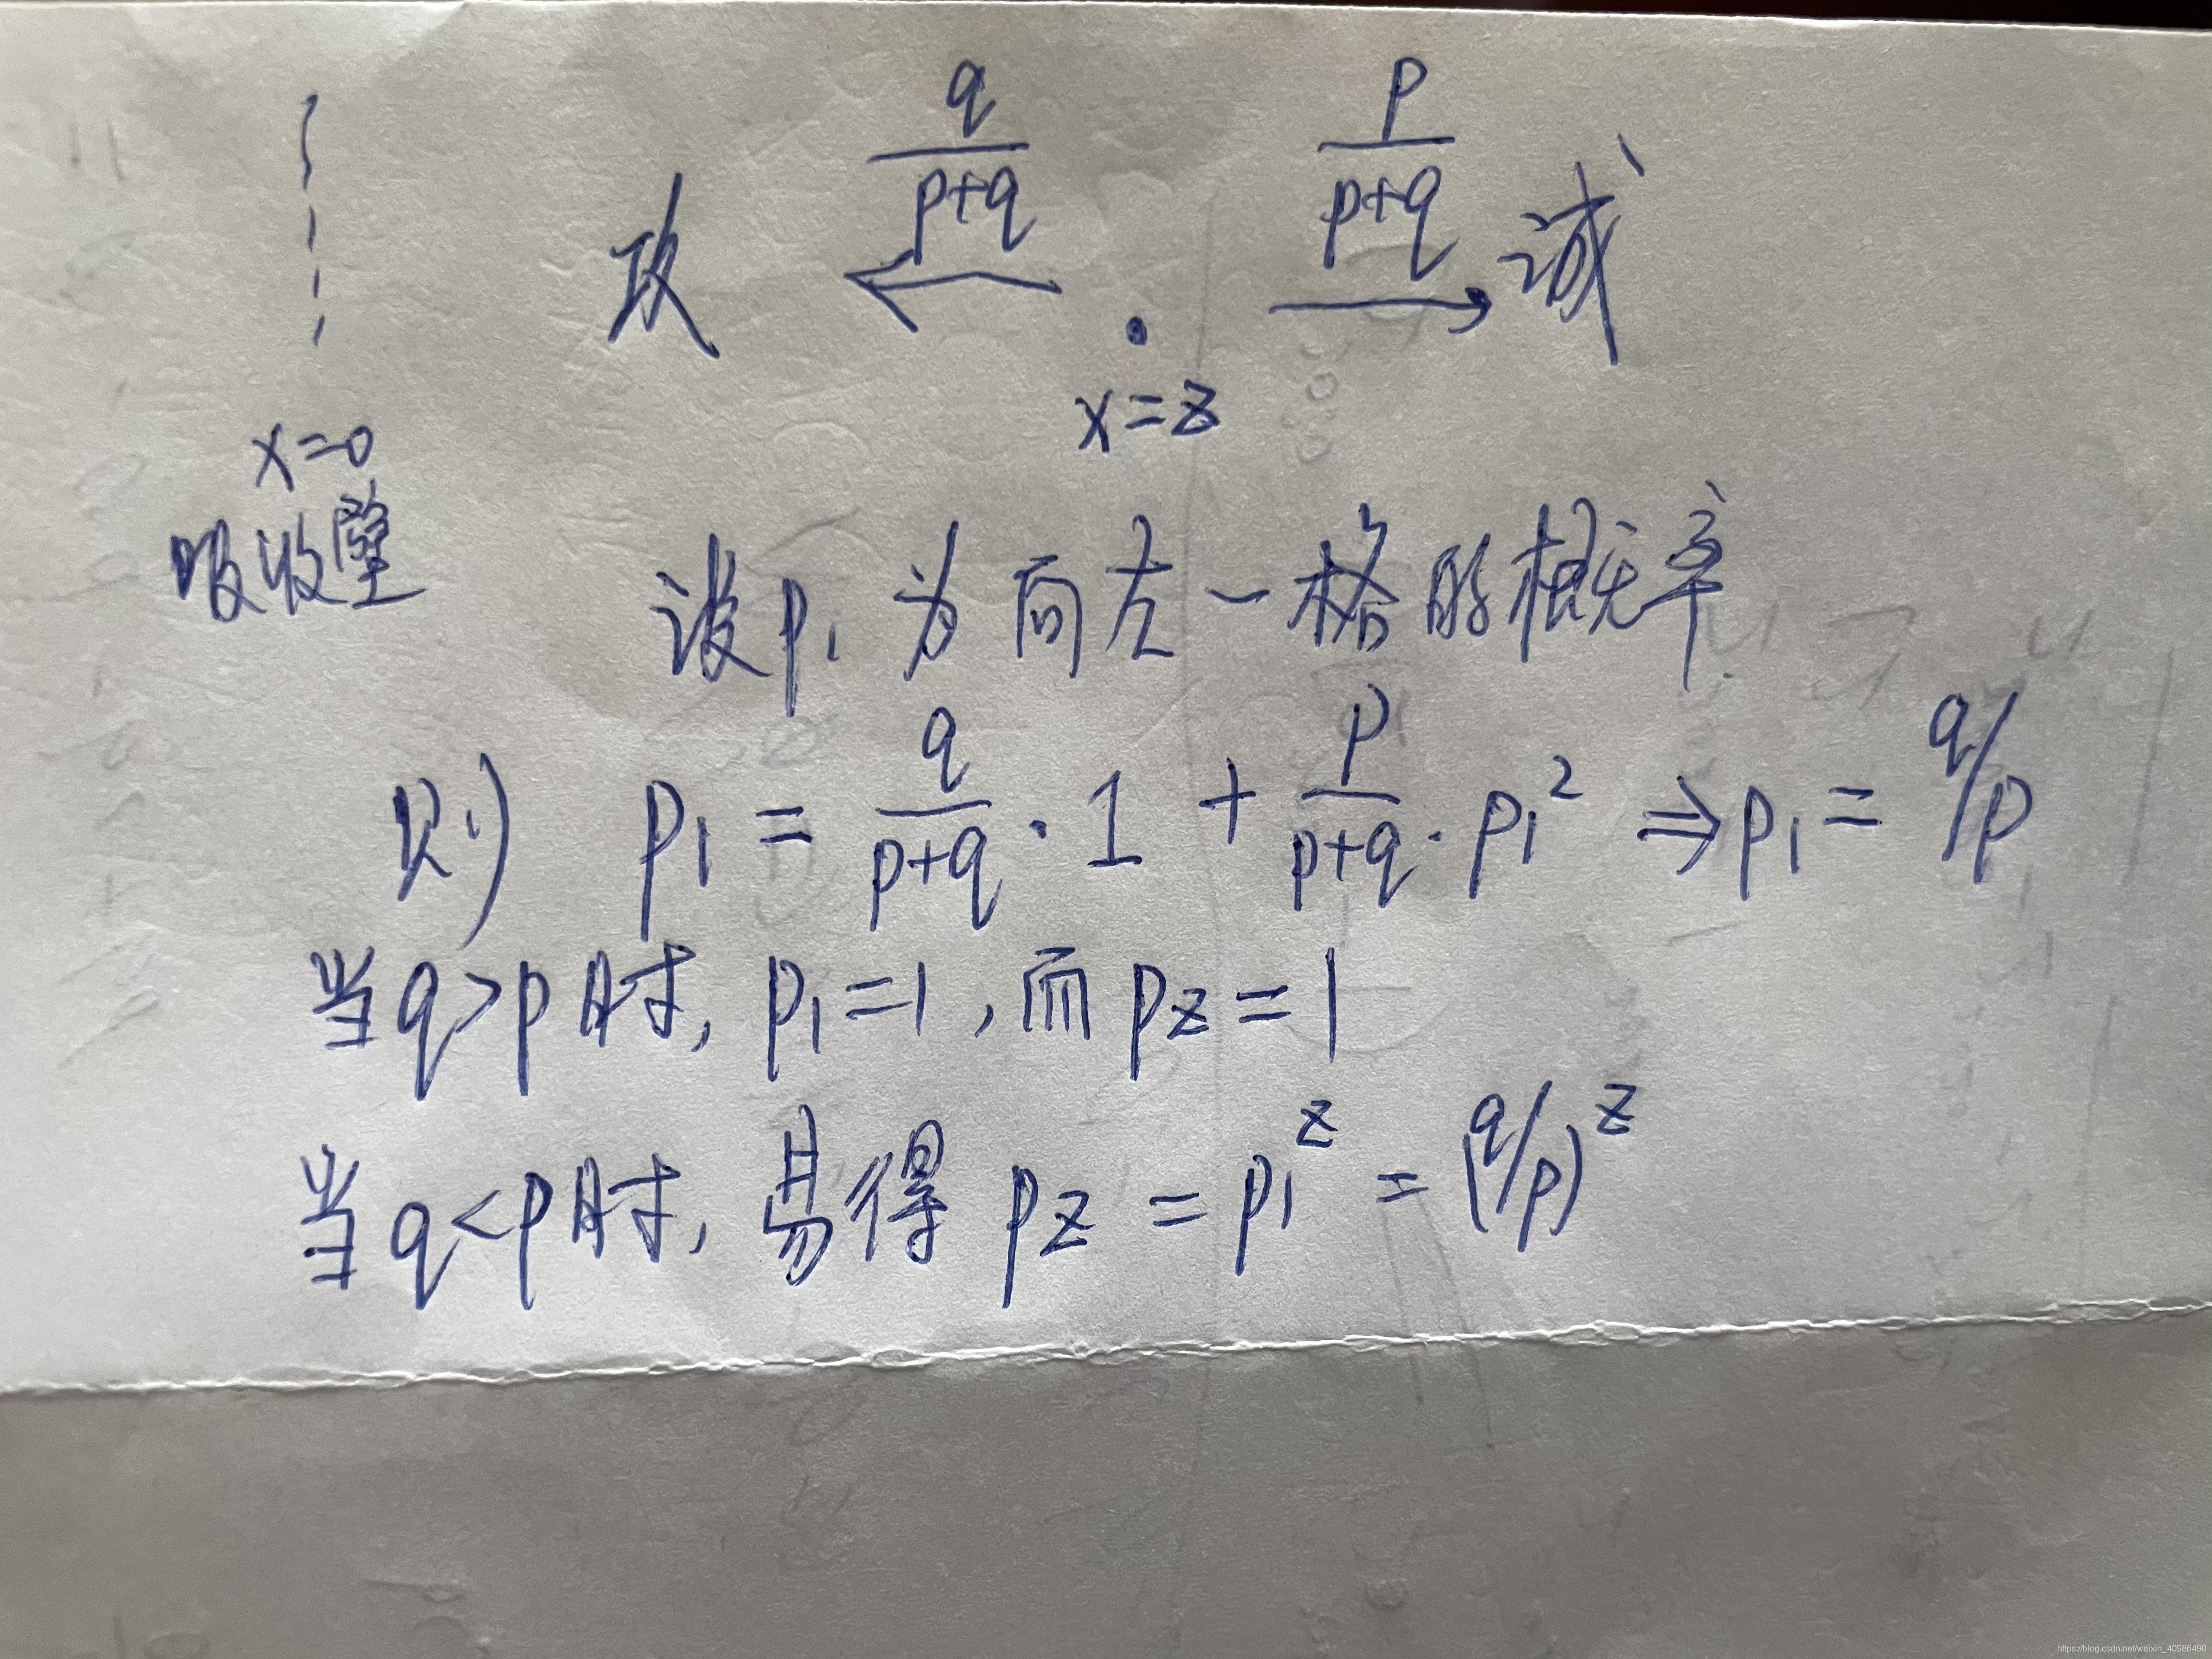 攻 \frac{q}{p+q} \frac{p}{p+q} 诚
x=z
x=0
吸收壁
设p₁为向左一格的概率
则 p₁ = \frac{q}{p+q}·1 + \frac{p}{p+q}·p₁² ⇒ p₁ = q/p
当q>p时, p₁=1, 而pz=1
当q<p时, 易得 pz = p₁^z = (q/p)^z
https://blog.csdn.net/weixin_40986490